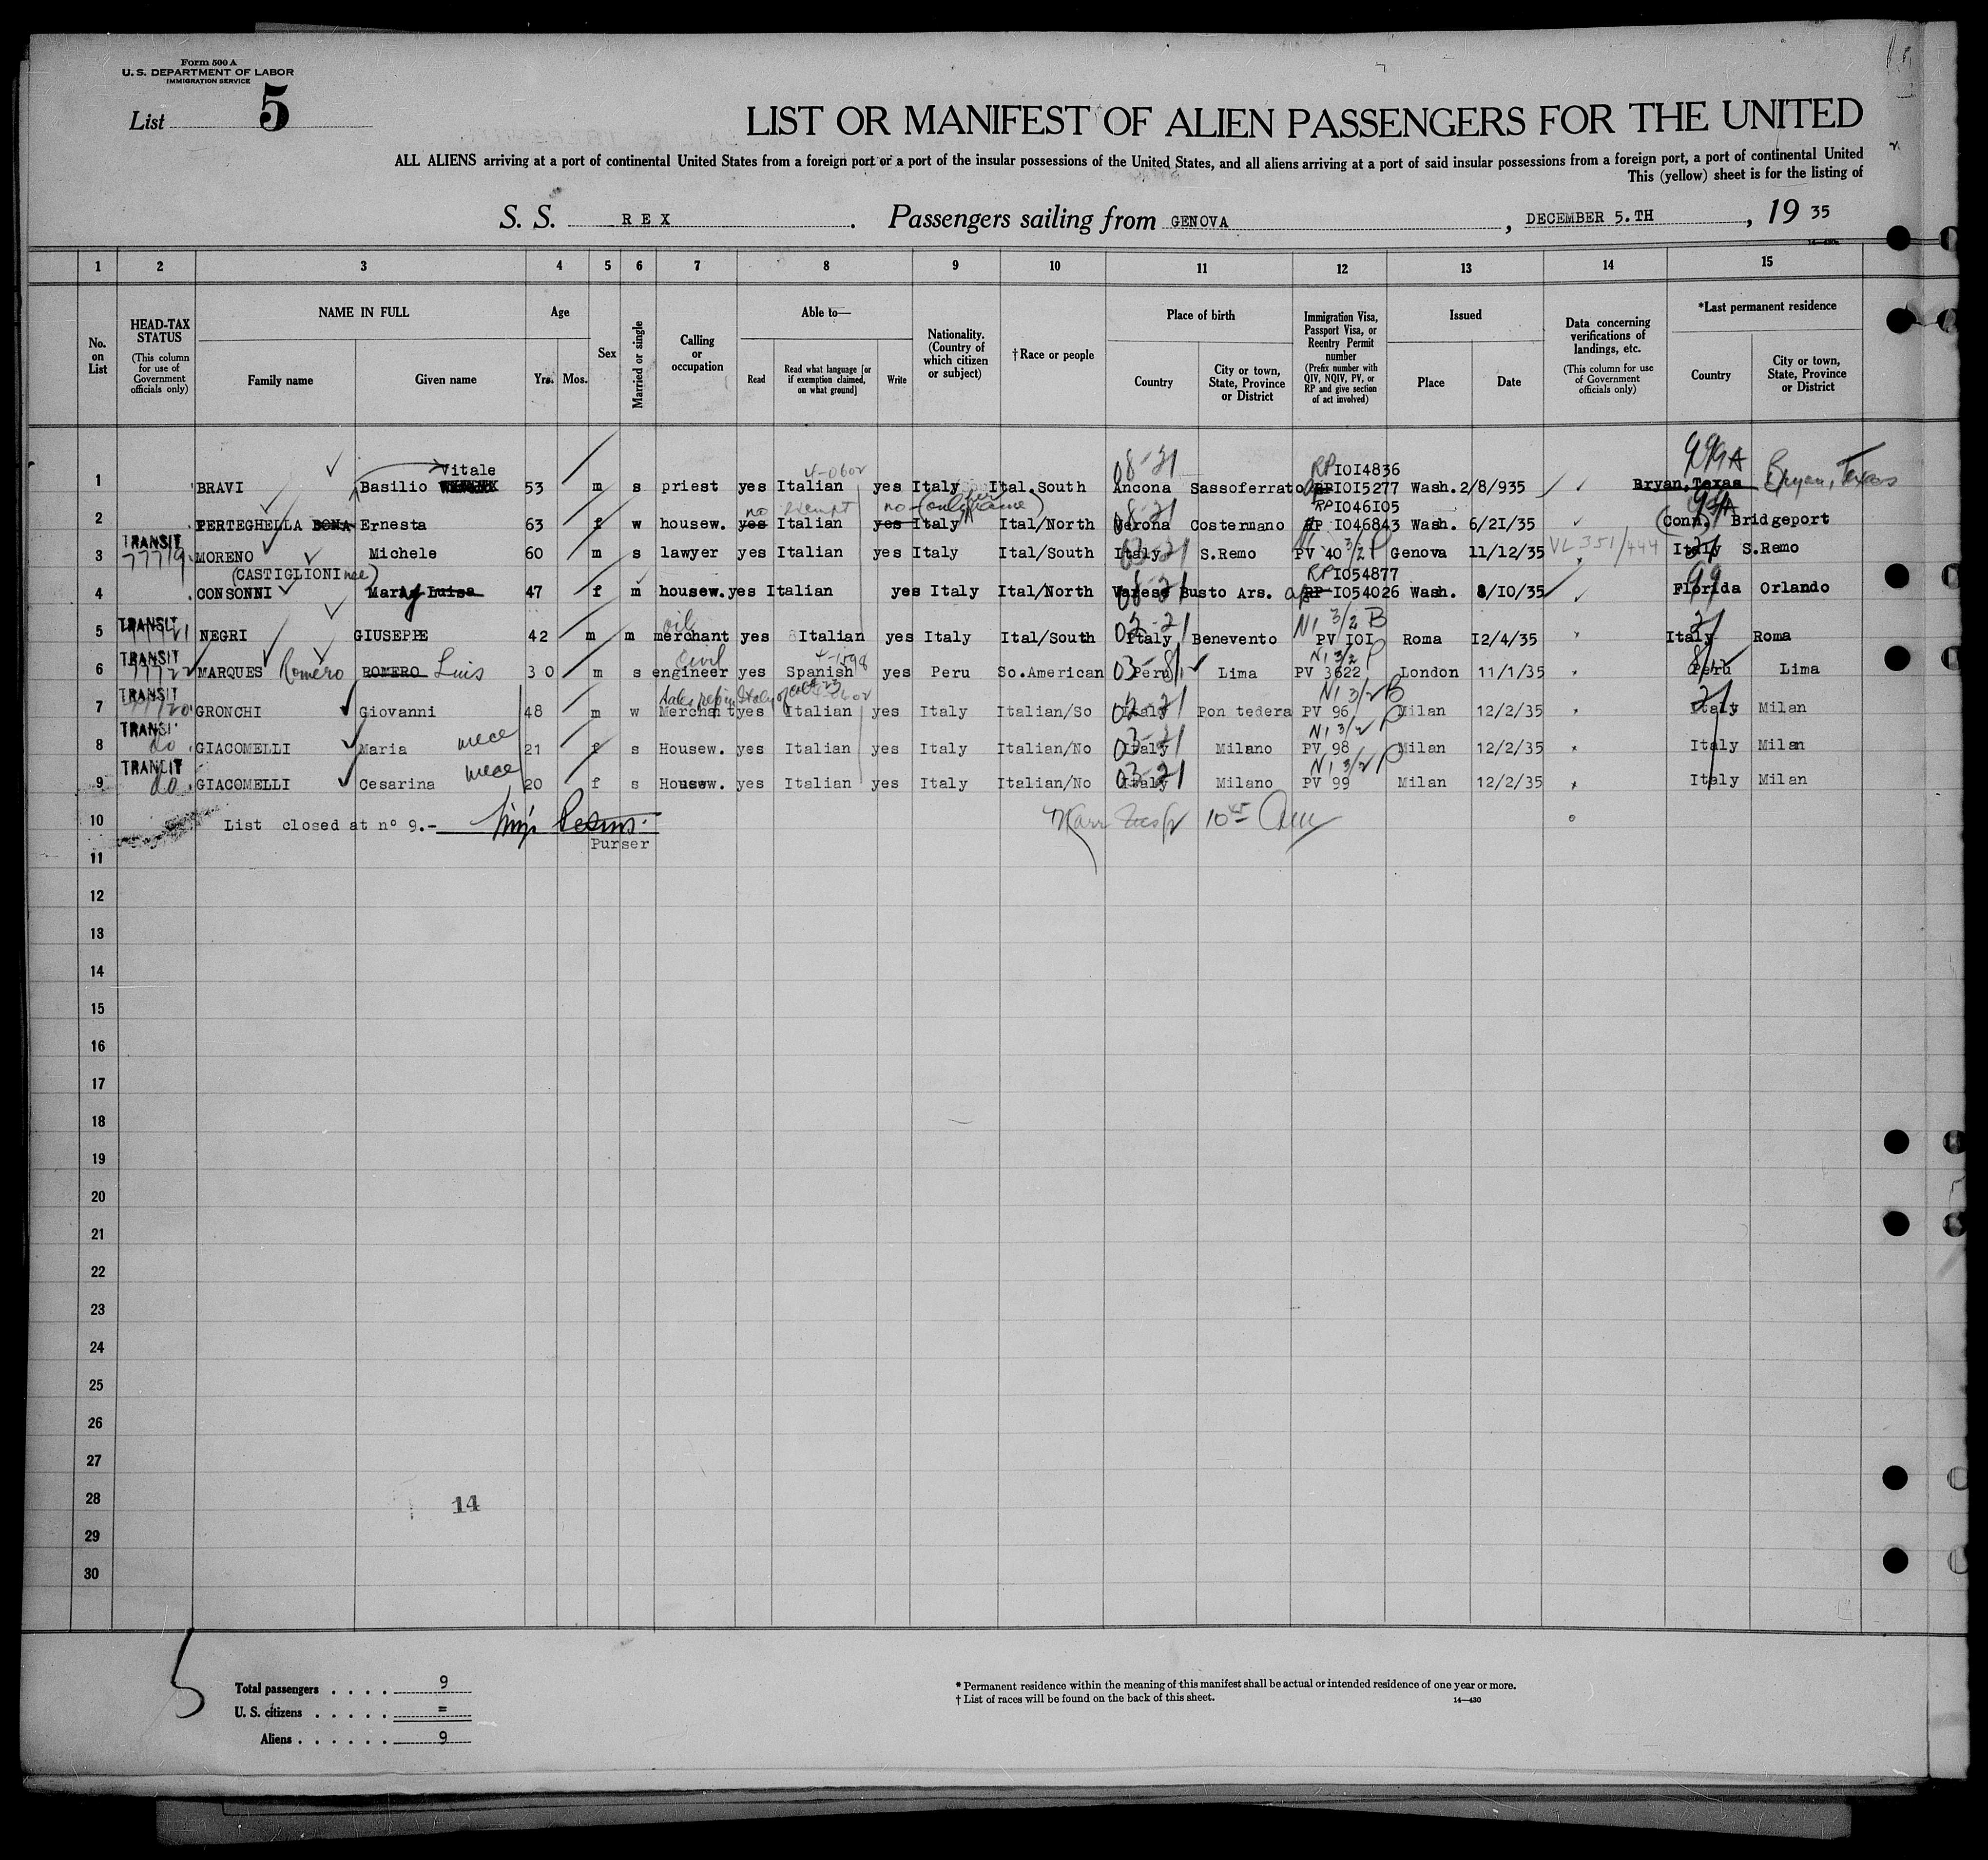 Form 500 A
U. S. DEPARTMENT OF LABOR
IMMIGRATION SERVICE
List 5
LIST OR MANIFEST OF ALIEN PASSENGERS FOR THE UNITED
ALL ALIENS arriving at a port of continental United States from a foreign port or a port of the insular possessions of the United States, and all aliens arriving at a port of said insular possessions from a foreign port, a port of continental United
This (yellow) sheet is for the listing of
S. S. REX. Passengers sailing from GENOVA, DECEMBER 5.TH, 19 35
1 2 3 4 5 6 7 8 9 10 11 12 13 14 15
No. on List
HEAD-TAX STATUS
(This column for use of Government officials only)
NAME IN FULL
Family name Given name
Age
Yrs. Mos.
Sex
Married or single
Calling or occupation
Able to—
Read
Read what language [or if exemption claimed, on what ground]
Write
Nationality. (Country of which citizen or subject)
†Race or people
Place of birth
Country
City or town, State, Province or District
Immigration Visa, Passport Visa, or Reentry Permit number
(Prefix number with QIV, NQIV, PV, or RP and give section of act involved)
Issued
Place Date
Data concerning verifications of landings, etc.
(This column for use of Government officials only)
*Last permanent residence
Country
City or town, State, Province or District
Vitale 4-0602 08-21 RP IOI4836 99A
1 BRAVI Basilio 53 m s priest yes Italian yes Italy Ital.South Ancona Sassoferrato RP IOI5277 Wash. 2/8/935 Bryan,Texas Bryan, Texas
no exempt no (only name) 08-21 RP IO46IO5 99A
2 PERTEGHELLA BONA Ernesta 63 f w housew. yes Italian yes Italy Ital/North Verona Costermano RP IO46843 Wash. 6/2I/35 (Conn. Bridgeport
TRANSIT
3 77719 MORENO Michele 60 m s lawyer yes Italian yes Italy Ital/South Italy 03-21 S.Remo PV 40 3/2 P Genova 11/12/35 VL 351/444 Italy 21 S.Remo
(CASTIGLIONI nee) RP IO54877
4 CONSONNI Mary Luisa 47 f m housew. yes Italian yes Italy Ital/North Varese 08-21 Busto Ars. RP IO54026 Wash. 8/10/35 Florida 99 Orlando
TRANSIT oil N1 3/2 B
5 77721 NEGRI GIUSEPPE 42 m m merchant yes Italian yes Italy Ital/South Italy 02-21 Benevento PV IOI Roma I2/4/35 Italy 21 Roma
TRANSIT civil 4-1598 N1 3/2 P
6 77722 MARQUES Romero ROMERO Luis 30 m s engineer yes Spanish yes Peru So.American Peru 03-81 Lima PV 3622 London 11/1/35 Peru 81 Lima
TRANSIT N1 3/2 B
7 77720 GRONCHI Giovanni 48 m w Merchant yes Italian yes Italy Italian/So Italy 02-21 Pon tedera PV 96 Milan 12/2/35 Italy 21 Milan
TRANSI N1 3/2 P
8 do GIACOMELLI Maria niece 21 f s Housew. yes Italian yes Italy Italian/No Italy 03-21 Milano PV 98 Milan 12/2/35 Italy Milan
TRANSIT N1 3/2 P
9 do GIACOMELLI Cesarina niece 20 f s Housew. yes Italian yes Italy Italian/No Italy 03-21 Milano PV 99 Milan 12/2/35 Italy Milan
10 List closed at n° 9.-
Purser
11
12
13
14
15
16
17
18
19
20
21
22
23
24
25
26
27
28 14
29
30
5
Total passengers . . . . 9
U. S. citizens . . . . . =
Aliens . . . . . . 9
* Permanent residence within the meaning of this manifest shall be actual or intended residence of one year or more.
† List of races will be found on the back of this sheet. 14—430